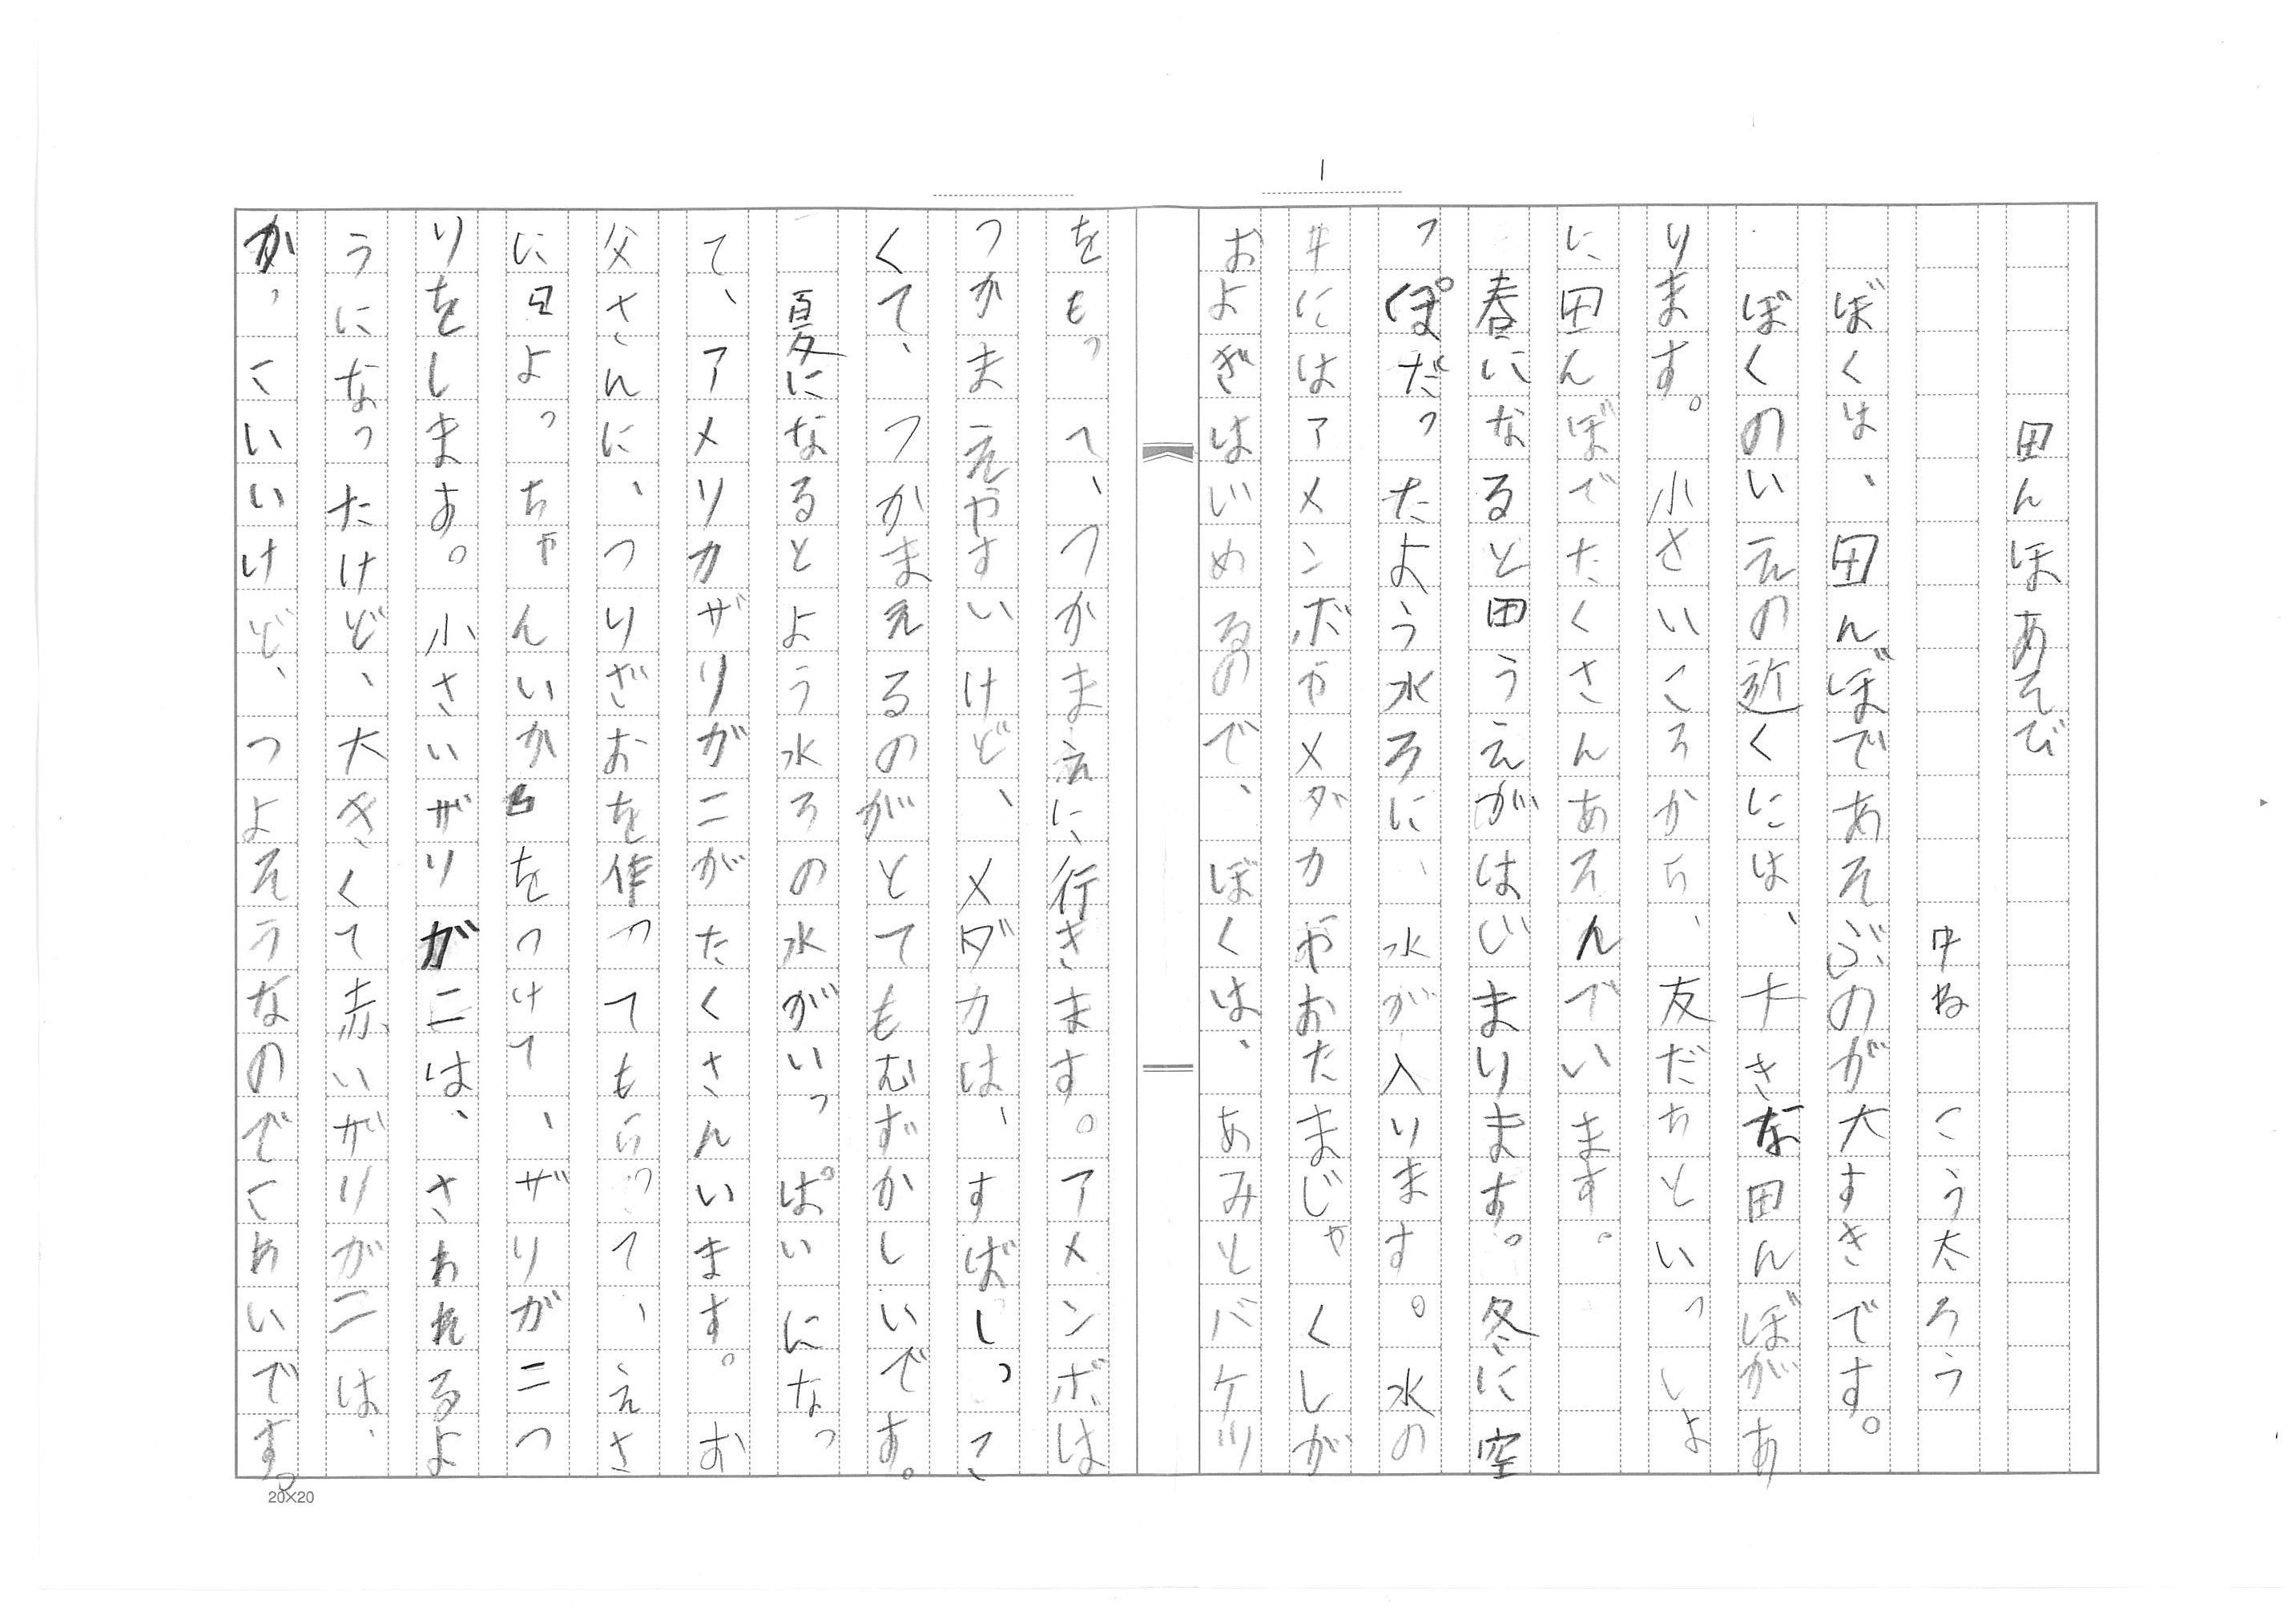 1
田んぼあそび
中ね こう太ろう
ぼくは、田んぼであそぶのが大すきです。
ぼくのいえの近くには、大きな田んぼがあ
ります。小さいころから、友だちといっしょ
に田んぼでたくさんあそんでいます。
春になると田うえがはじまります。冬に空
っぽだったよう水ろに、水が入ります。水の
中にはアメンボやメダカやおたまじゃくしが
およぎはじめるので、ぼくは、あみとバケツ
をもって、つかまえに行きます。アメンボは
つかまえやすいけど、メダカは、すばしっこ
くて、つかまえるのがとてもむずかしいです。
夏になるとよう水ろの水がいっぱいになっ
て、アメリカザリガニがたくさんいます。お
父さんに、つりざおを作ってもらって、えさ
によっちゃんいかをつけて、ザリガニつ
りをします。小さいザリガニは、さわれるよ
うになったけど、大きくて赤いザリガニは、
かっこいいけど、つよそうなのでこわいです。
20×20